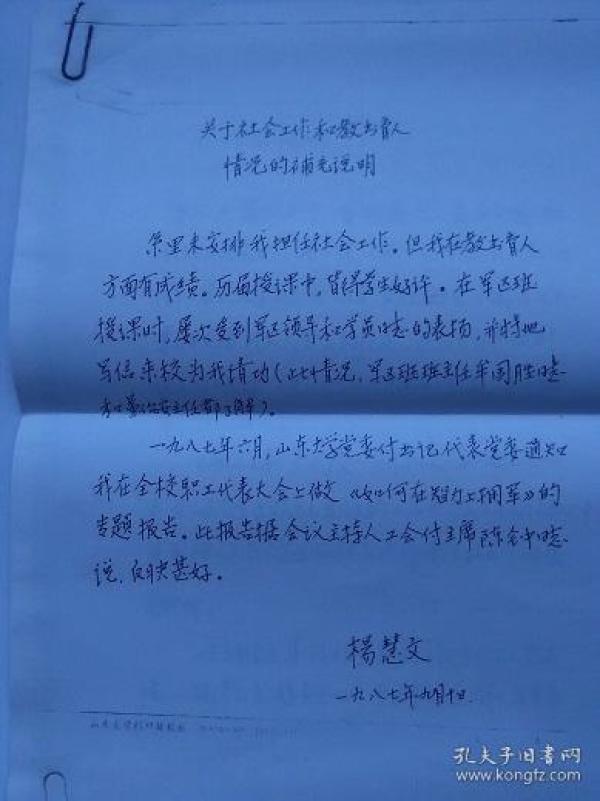 关于社会工作和教书育人
情况的补充说明
系里未安排我担任社会工作。但我在教书育人
方面有成绩。历届授课中,皆得学生好评。在军区班
授课时,屡次受到军区领导和学员同志的表扬,并特地
写信来校为我请功(此情况,军区班班主任牟国胜同志
和 主任都了解)。
一九八七年六月,山东大学党委付书记代表党委通知
我在全校职工代表大会上做《如何在智力上拥军》的
专题报告。此报告据会议主持人工会付主席陈 同志
说,反映甚好。
杨慧文
一九八七年九月十日
山东大学
孔夫子旧书网
www.kongfz.com